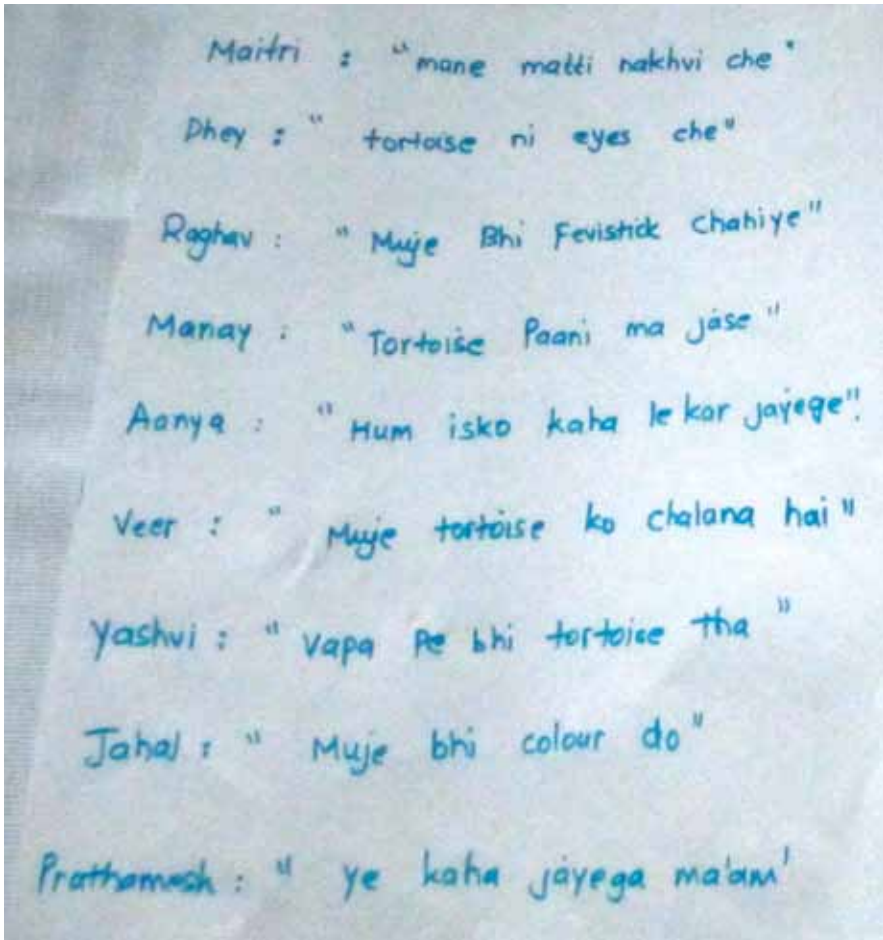 Maitri : "mane matti nakhvi che"
Dhey : " tortoise ni eyes che"
Raghav : " Muje Bhi Fevistick chahiye"
Manay : "Tortoise Paani ma jase"
Aanya : " Hum isko kaha le kar jayege".
Veer : " Muje tortoise ko chalana hai"
Yashvi : " Vapa pe bhi tortoise tha "
Jahal : " Muje bhi colour do"
Prathamesh : " ye kaha jayega ma'am'